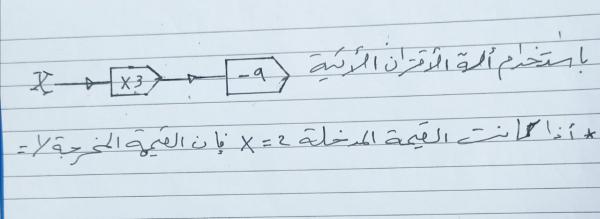 باستخدام ألة الأقتران الأتية X ×3 -9
* أذا كانت القيمة المدخلة X = 2 فإن القيمة المخرجة Y =